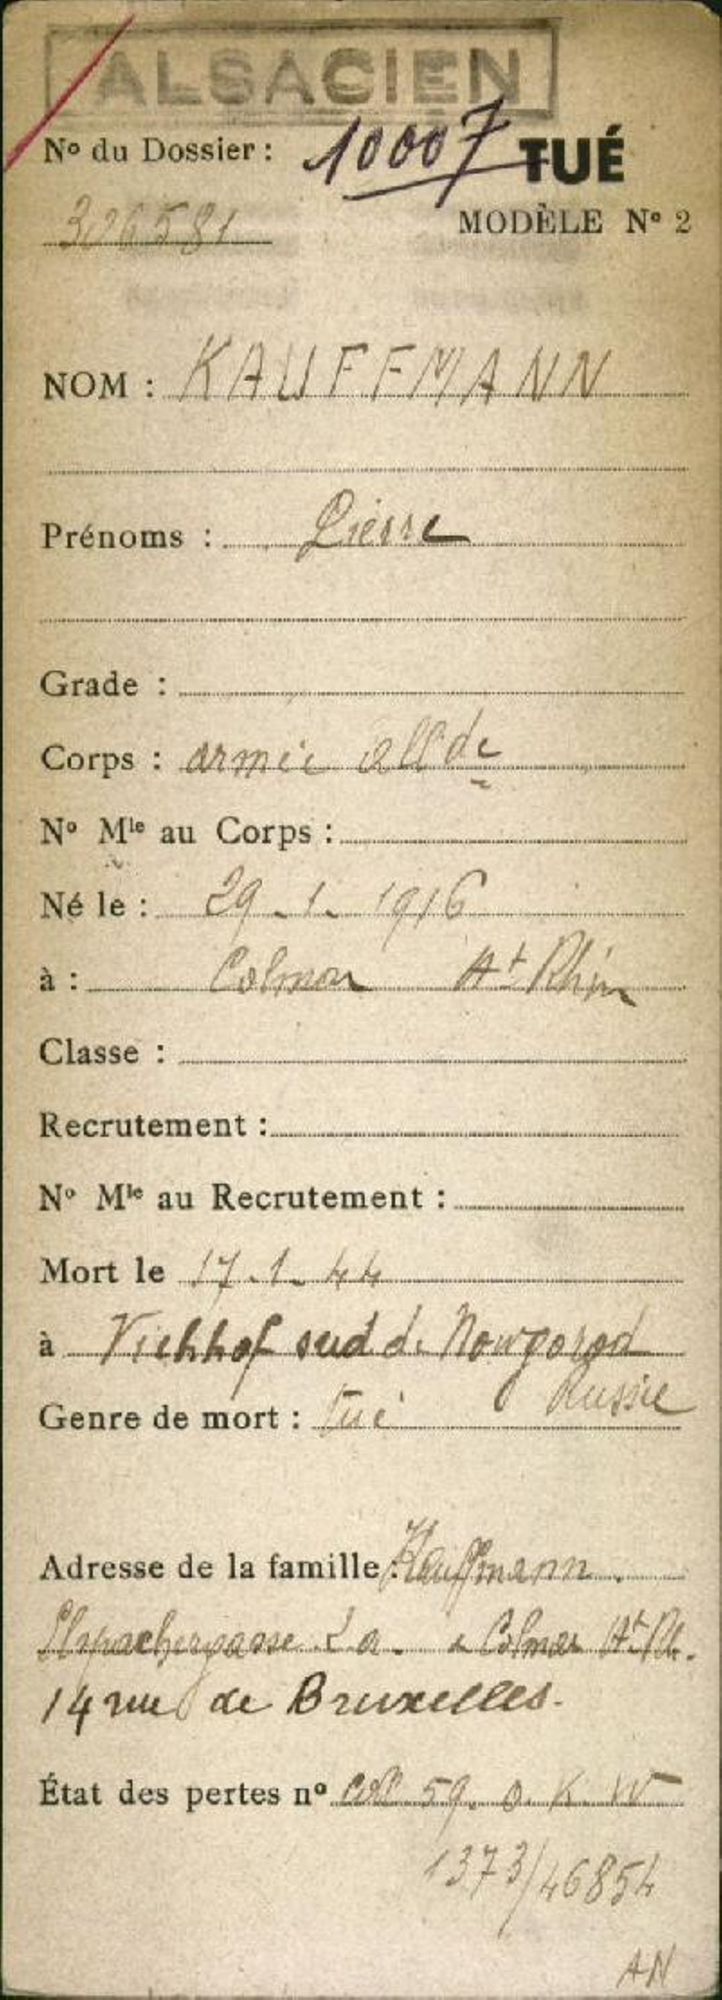 ALSACIEN
N° du Dossier : 10007 TUÉ
326581 MODÈLE N° 2
NOM : KAUFFMANN
Prénoms : Pierre
Grade :
Corps : armée allde
N° Mle au Corps :
Né le : 29-1-1916
à : Colmar Ht Rhin
Classe :
Recrutement :
N° Mle au Recrutement :
Mort le 17.1.44
à Viehhof sud de Nowgorod
Russie
Genre de mort : Tué
Adresse de la famille : Kauffmann.
2a. à Colmar Ht Rh.
14 rue de Bruxelles.
État des pertes n° 59. O. K. W
1373/46854
AN